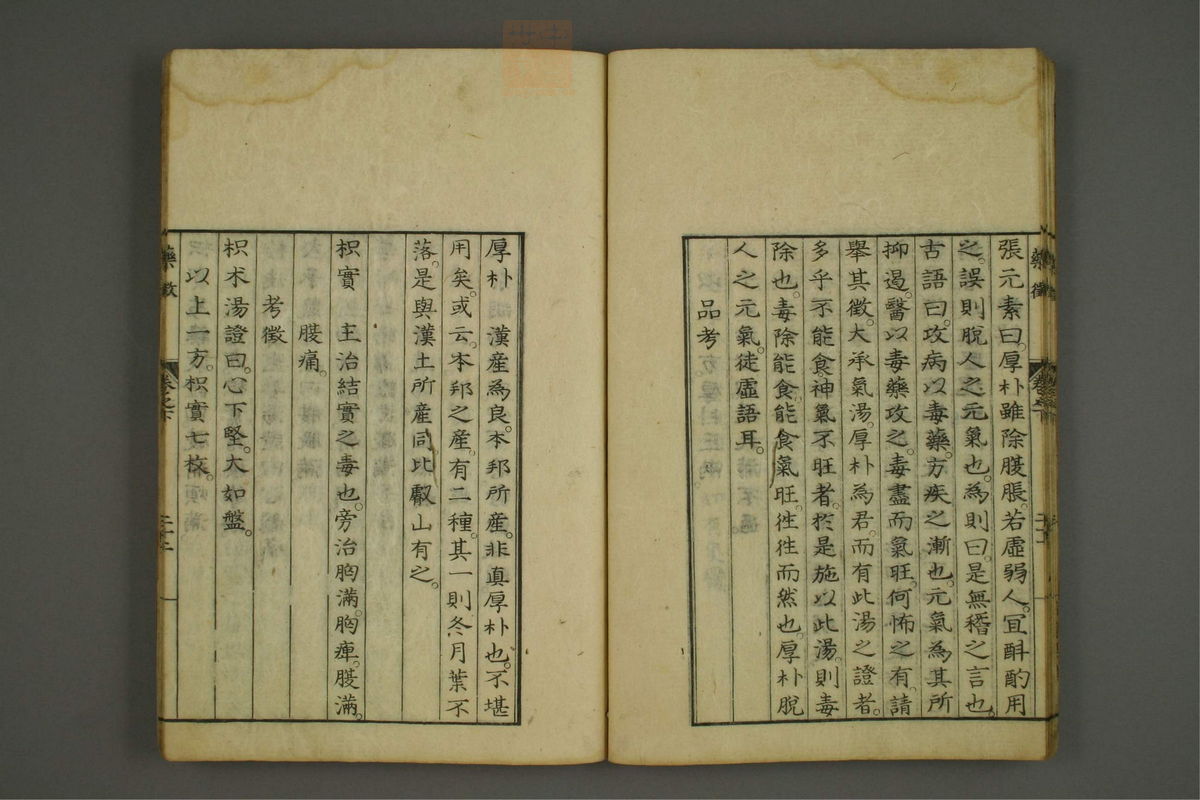 張元素曰。厚朴雖除腹脹。若虛弱人。宜斟酌用
之。誤則脫人之元氣也。為則曰。是無稽之言也。
古語曰。攻病以毒藥。方疾之漸也。元氣為其所
抑遏。醫以毒藥攻之。毒盡而氣旺。何怖之有。請
舉其徵。大承氣湯。厚朴為君。而有此湯之證者。
多乎不能食。神氣不旺者。於是施以此湯。則毒
除也。毒除能食。能食氣旺。往往而然也。厚朴脫
人之元氣。徒虛語耳。
品考
厚朴 漢産為良。本邦所産。非真厚朴也。不堪
用矣。或云。本邦之産。有二種。其一則冬月葉不
落。是與漢土所産同。此叡山有之。
枳實 主治結實之毒也。旁治胸滿。胸痺。腹滿。
腹痛。
考徵
枳朮湯證曰。心下堅。大如盤。
以上一方。枳實七枚。
藥徵
卷之下